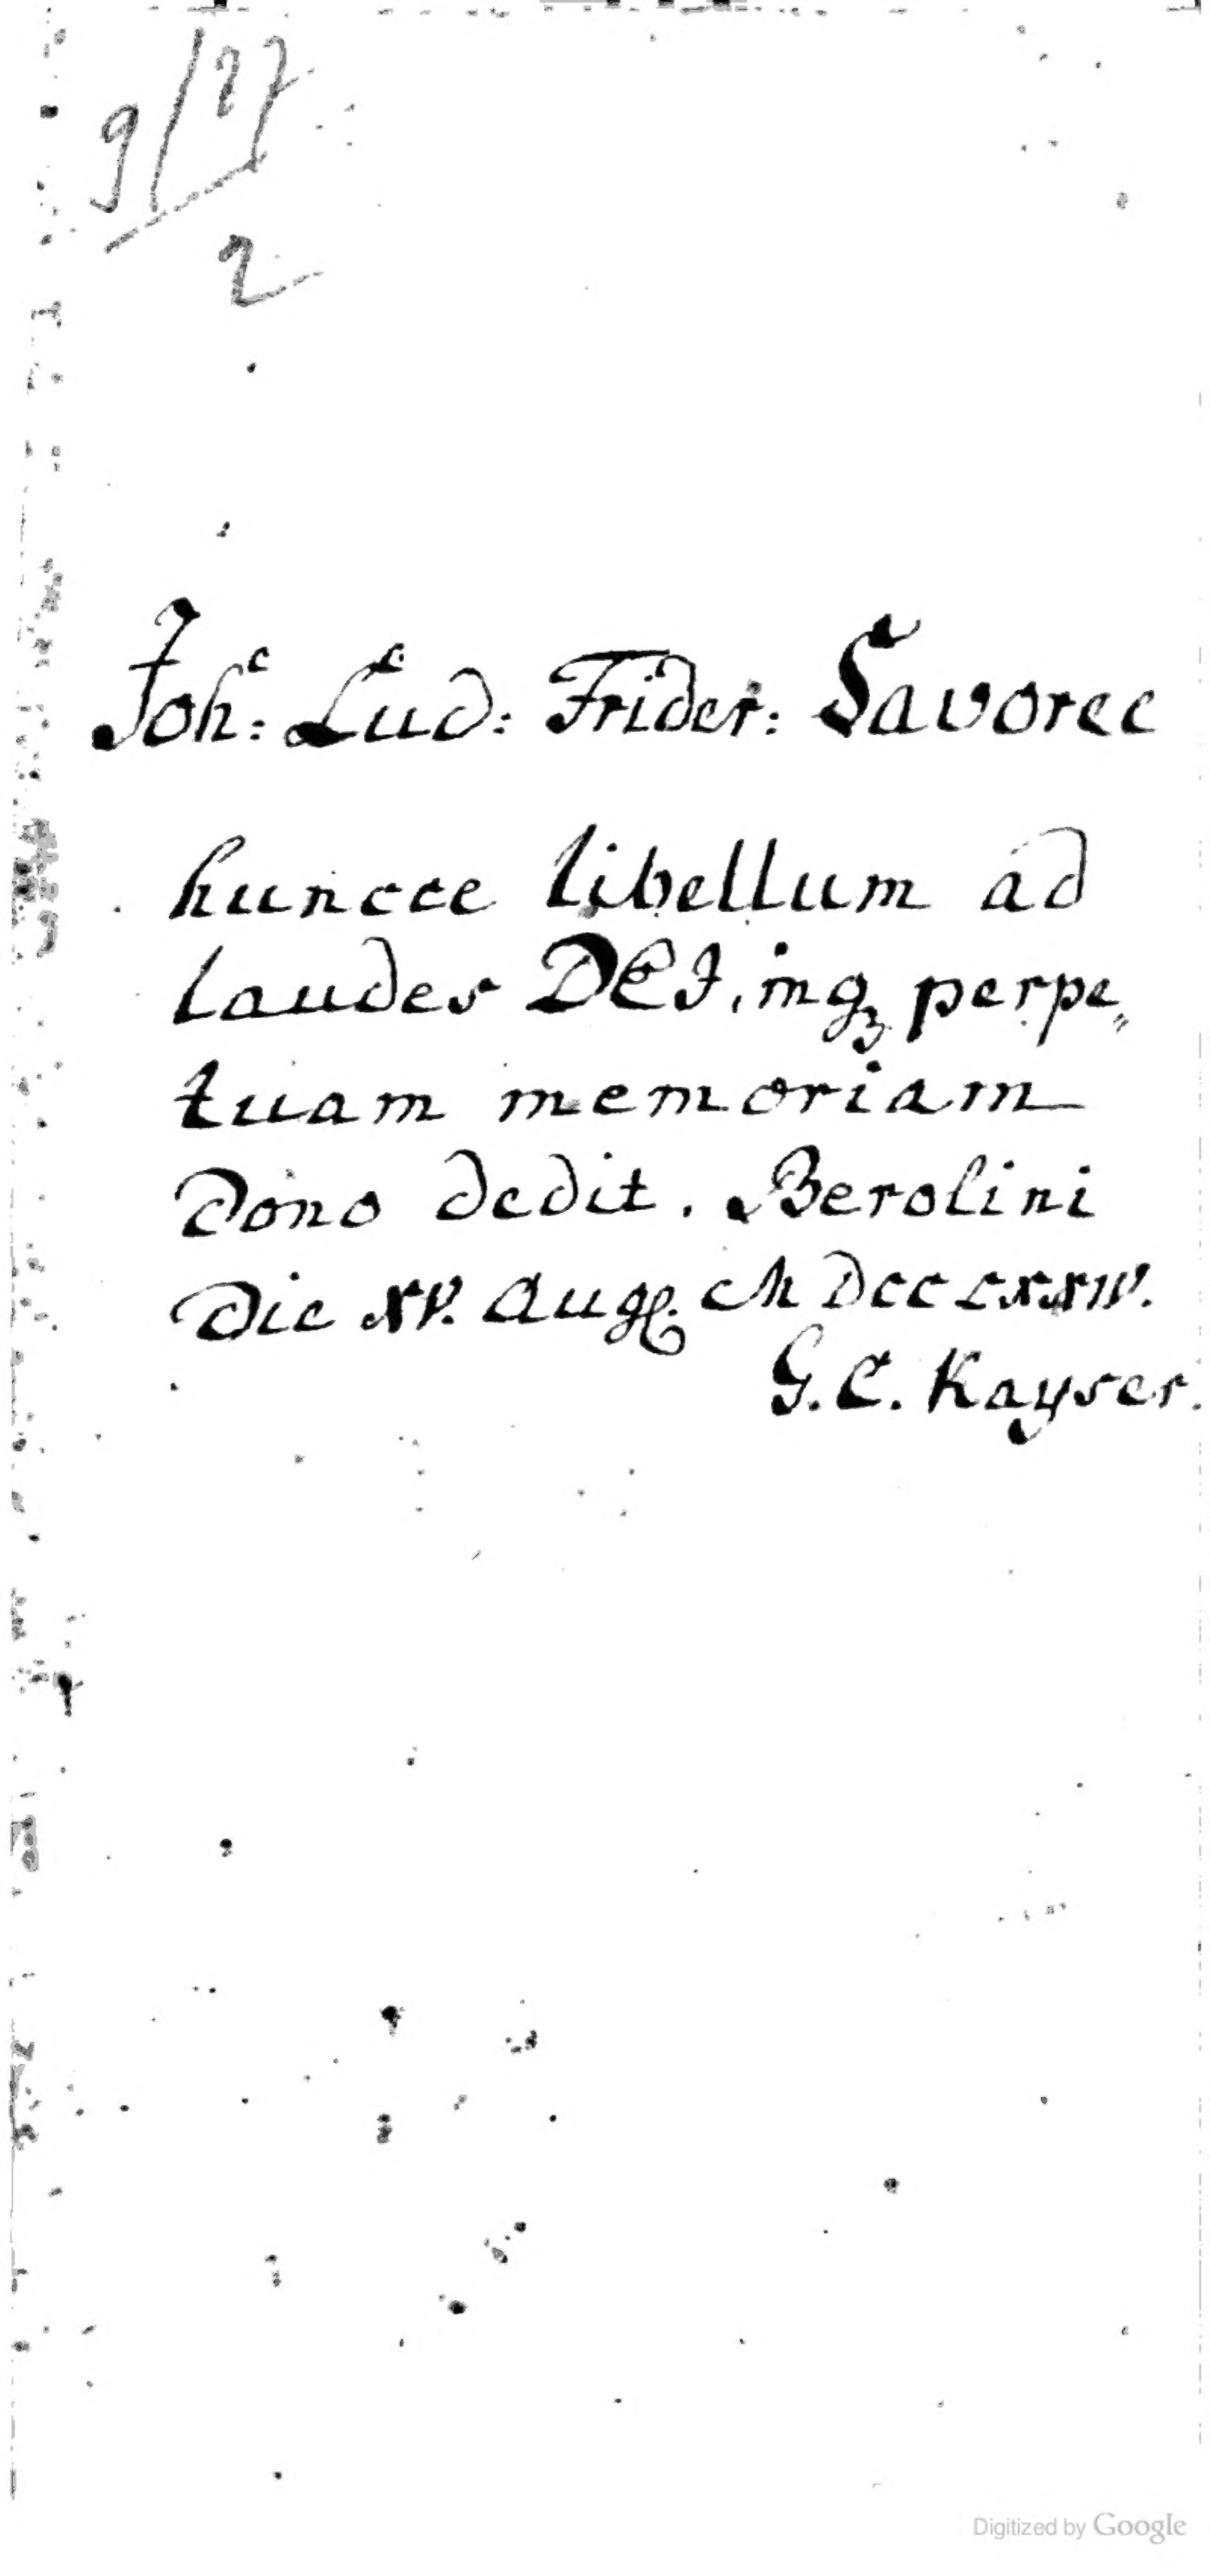 9/27
2
Joh: Lud: Frider: Savoree
huncce libellum ad
laudes DEI, inq3 perpe„
tuam memoriam
dono dedit. Berolini
die XV. Aug. DCC LXXIV.
G. C. Kayser.
Digitized by Google